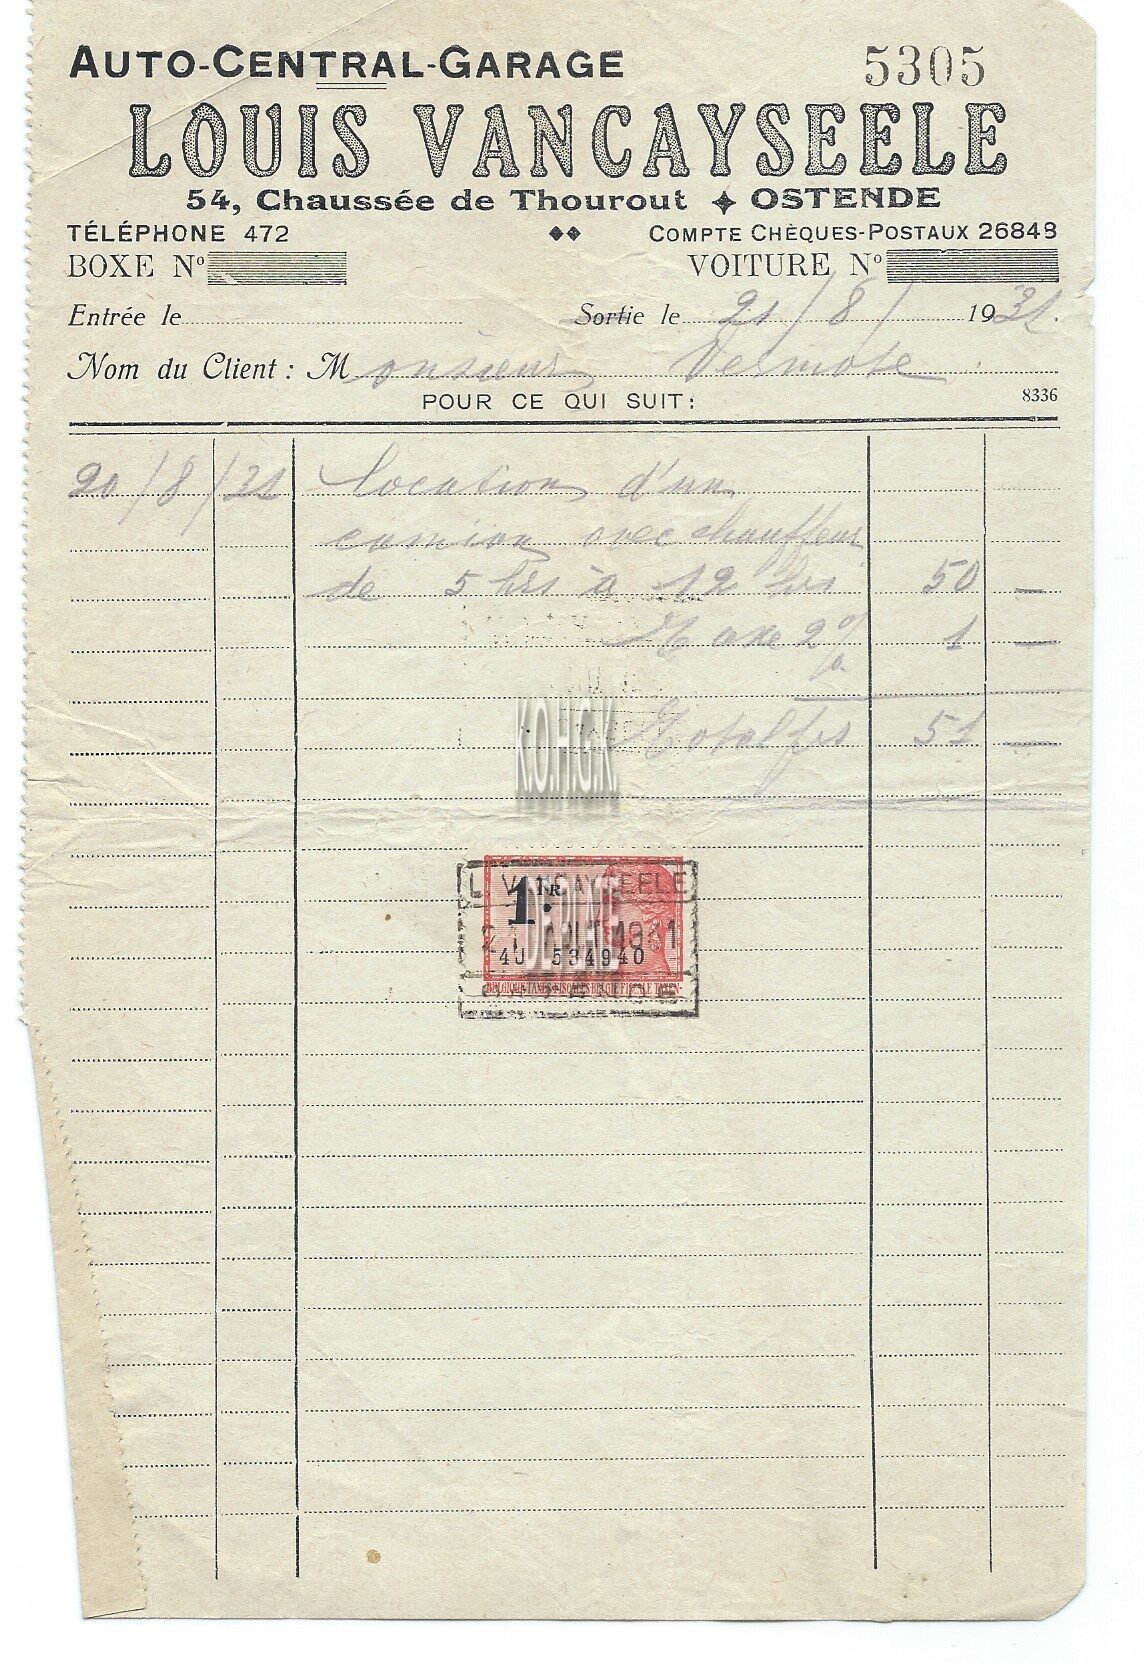 AUTO-CENTRAL-GARAGE 5305
LOUIS VANCAYSEELE
54, Chaussée de Thourout OSTENDE
TÉLÉPHONE 472 COMPTE CHÈQUES-POSTAUX 26848
BOXE Nº VOITURE Nº
Entrée le Sortie le 21/8/ 1931.
Nom du Client : Monsieur Vermote
POUR CE QUI SUIT : 8336
20/8/31 Location d'un
camion avec chauffeur
de 5 hrs à 12 hrs 50 —
Taxe 2% 1 —
K.O.H.G.K.
Total frs 51 —
L. VANCAYSEELE
1 FR.
DE PLATE
21 1931
4U 534940
BELGIQUE-TAXES FISCALES BELGIË FISCALE TAXEN